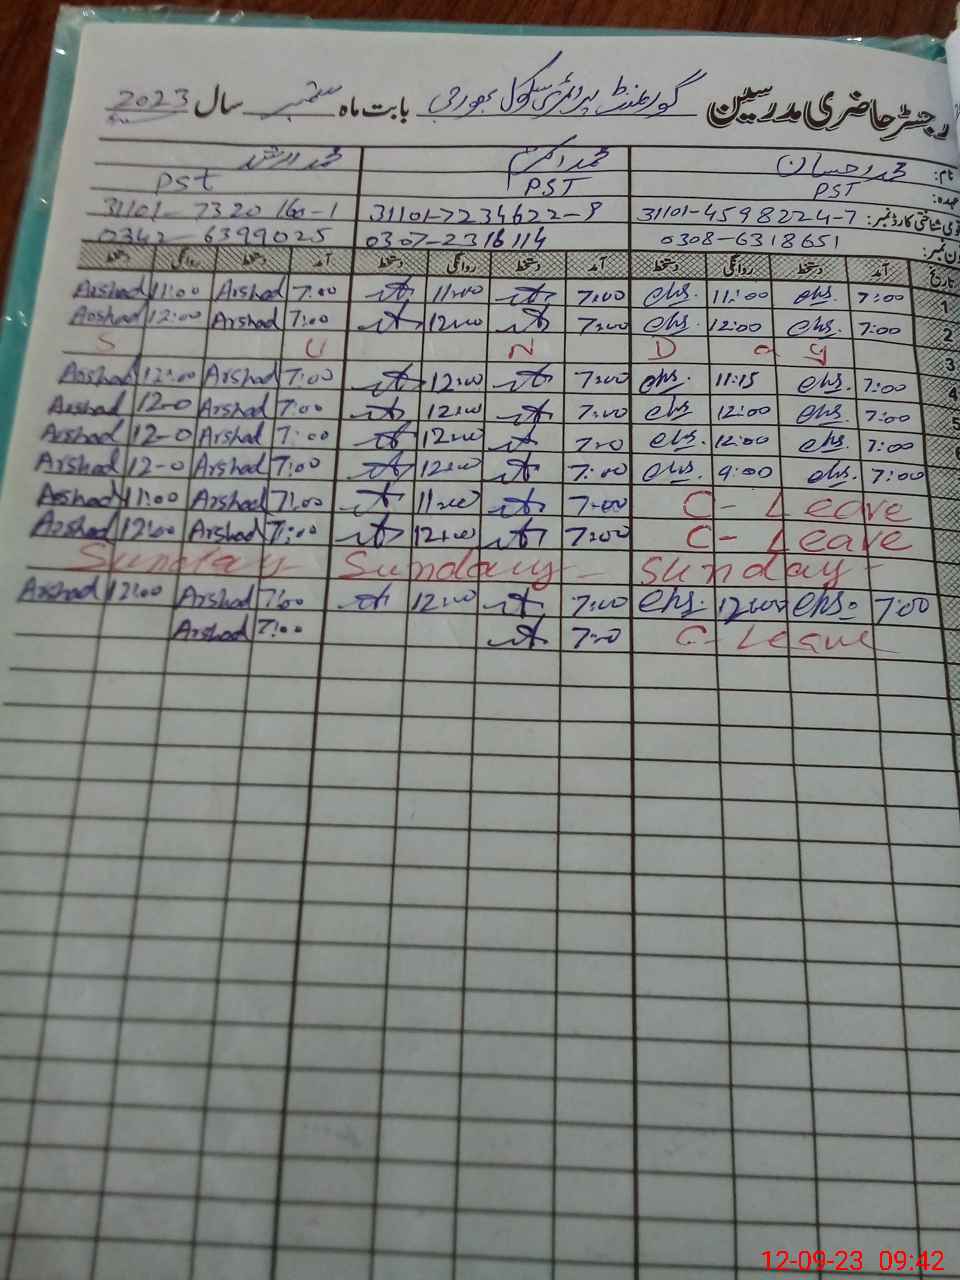 رجسٹر حاضری مدرسین گورنمنٹ پرائمری سکول بابت ماہ ستمبر سال 2023
نام: محمد احسان محمد اکرم محمد ارشد
عہدہ: PST PST PST
قومی شناختی کارڈ نمبر: 31101-4598224-7 31101-7234622-9 31101-7320160-1
فون نمبر: 0308-6318651 0307-2316114 0342-6399025
تاریخ آمد دستخط روانگی دستخط آمد دستخط روانگی دستخط آمد دستخط روانگی دستخط
1 7:00 ehs. 11:00 ehs. 7:00 11:00 7:00 Arshad 11:00 Arshad
2 7:00 ehs. 12:00 ehs. 7:00 12:00 7:00 Arshad 12:00 Arshad
3 S U N D a y
4 7:00 ehs. 11:15 ehs. 7:00 12:00 7:00 Arshad 12:00 Arshad
5 7:00 ehs. 12:00 ehs 7:00 12:00 7:00 Arshad 12-0 Arshad
6 7:00 ehs. 12:00 ehs. 7:0 12:00 7:00 Arshad 12-0 Arshad
7:00 ehs. 9:00 ehs. 7:00 12:00 7:00 Arshad 12-0 Arshad
C- Leave 7:00 11:00 7:00 Arshad 11:00 Arshad
C- Leave 7:00 12:00 7:00 Arshad 12:00 Arshad
Sunday- Sunday- Sunday-
7:00 ehs. 12:00 ehs. 7:00 12:00 7:00 Arshad 12:00 Arshad
C- Leave 7:0 7:00 Arshad
12-09-23 09:42